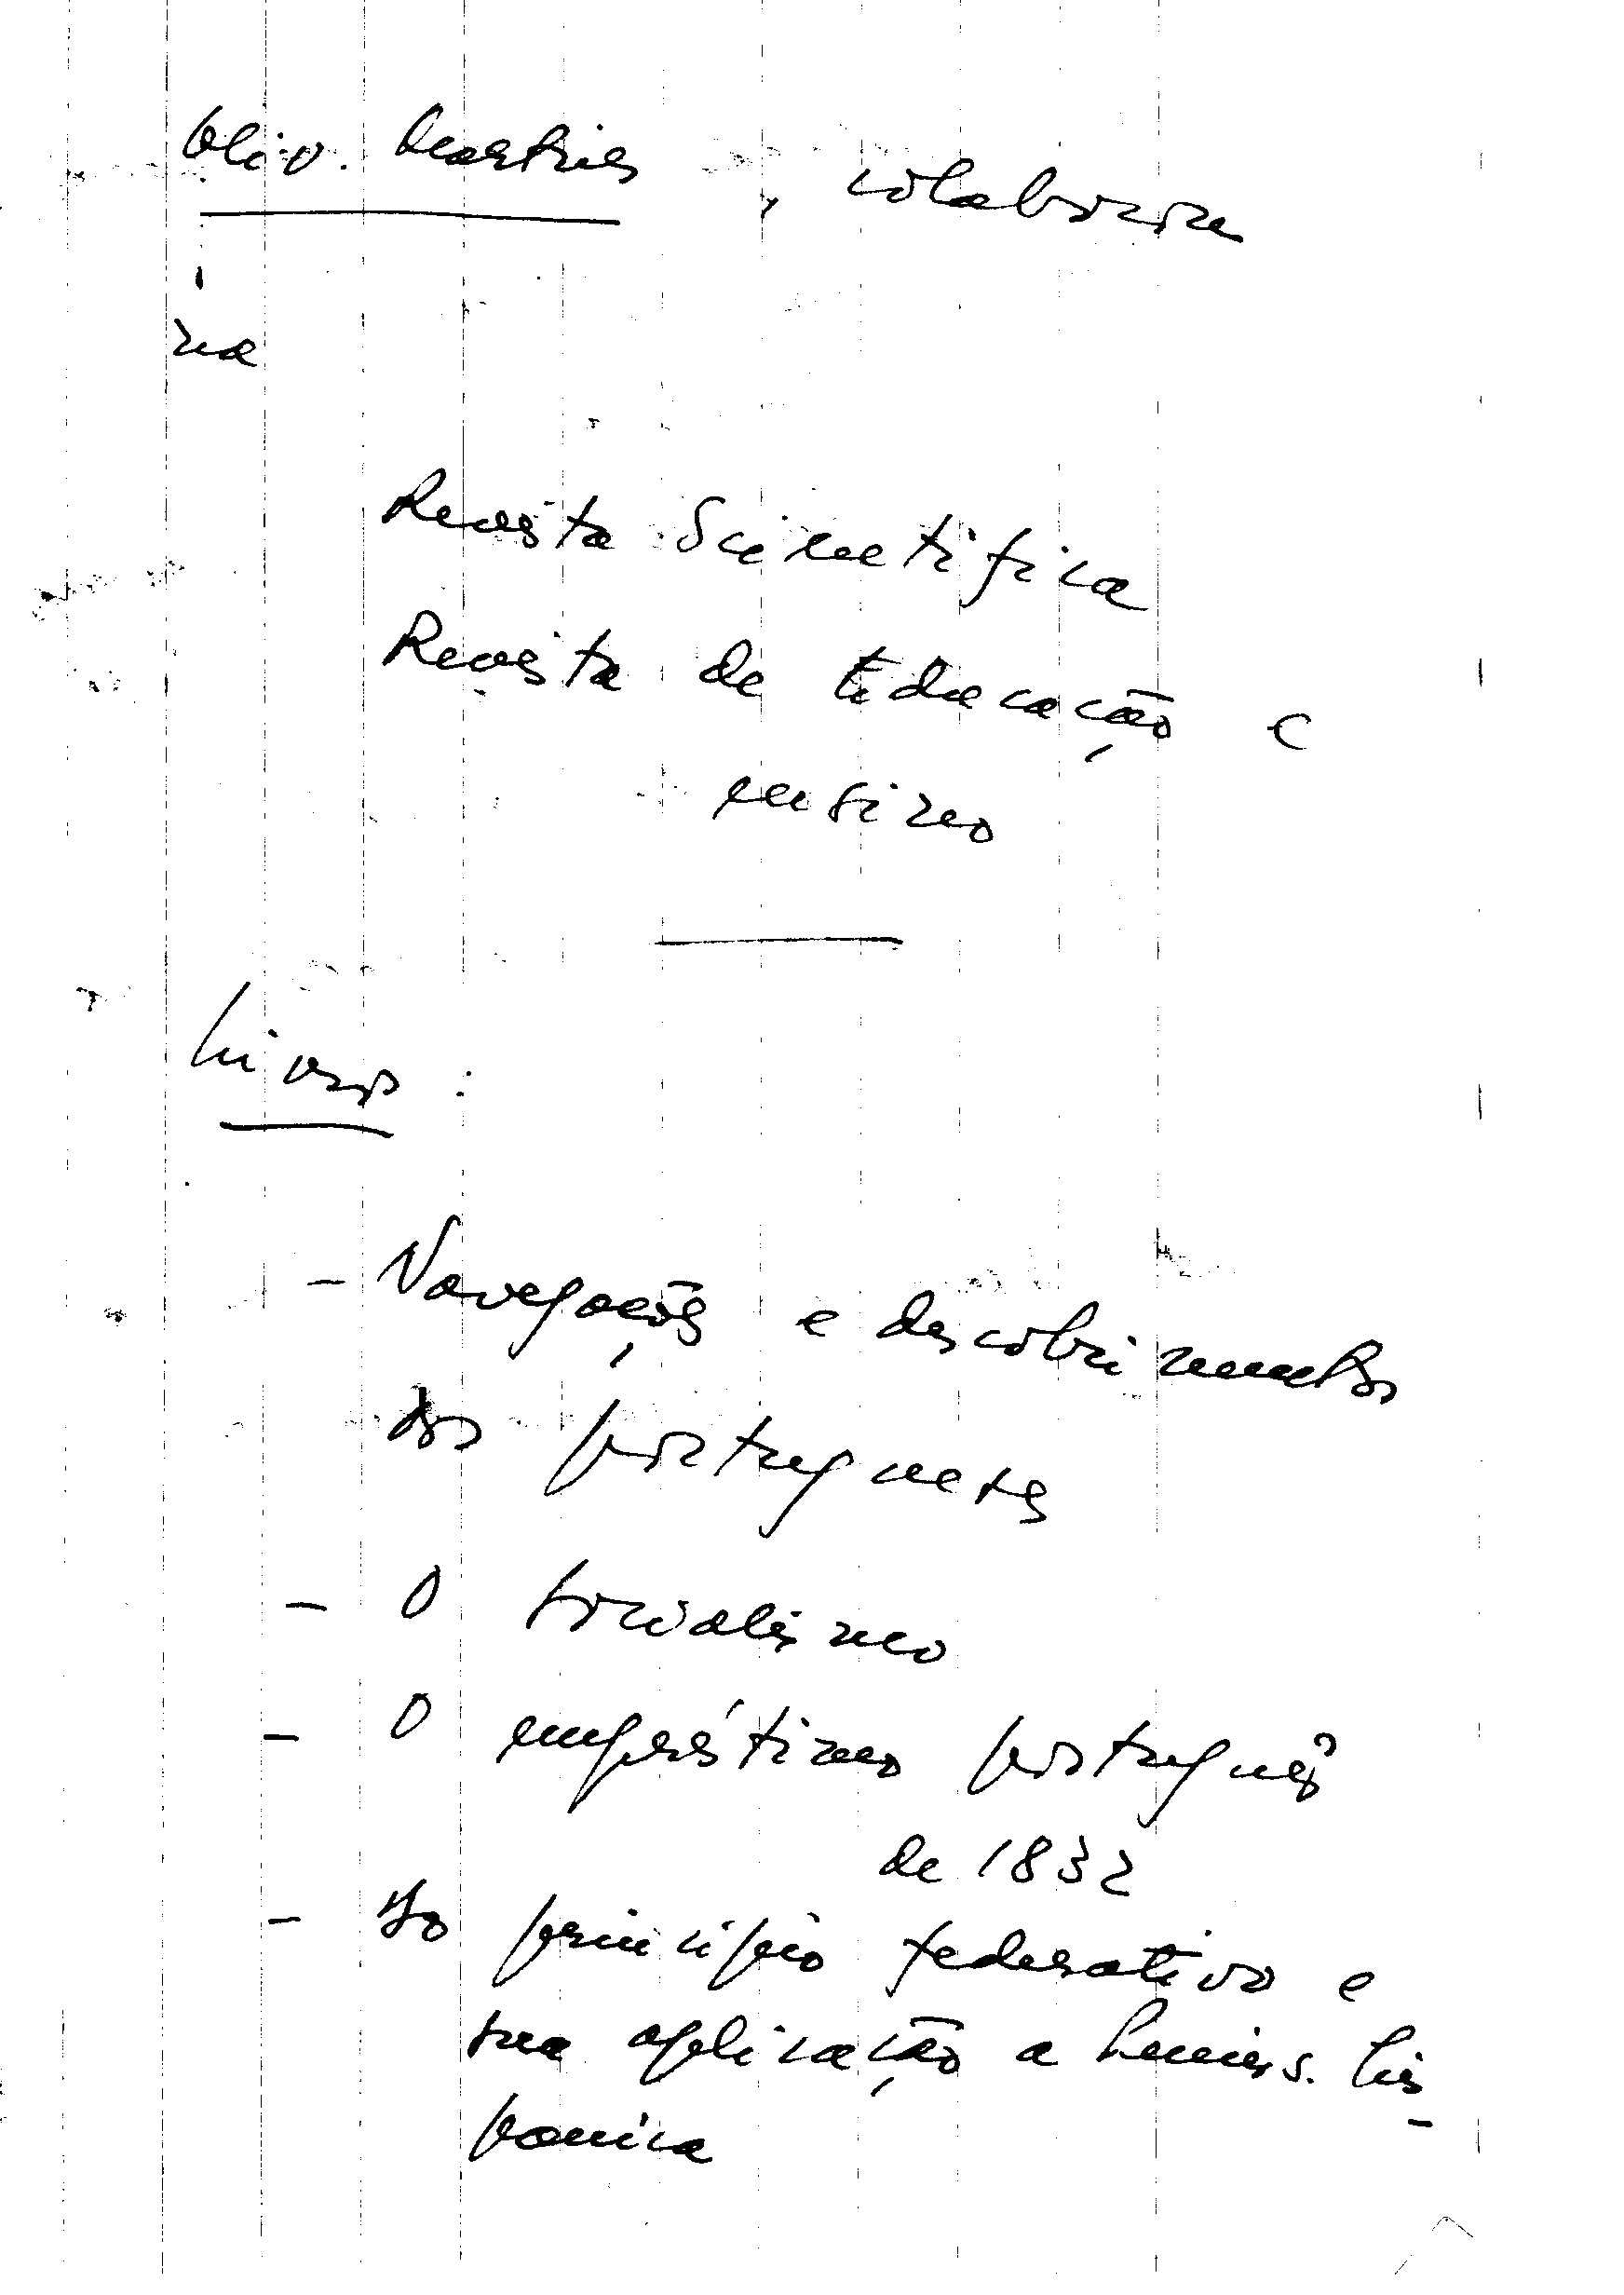 Oliv. Martins, colabora
na
Revista Scientifica
Revista de Educação e
ensino
Livros:
- Navegações e descobrimentos
dos portugueses
- O socialismo
- O empréstimo português
de 1832
- Do princípio federativo e
sua aplicação a Penins. his-
panica